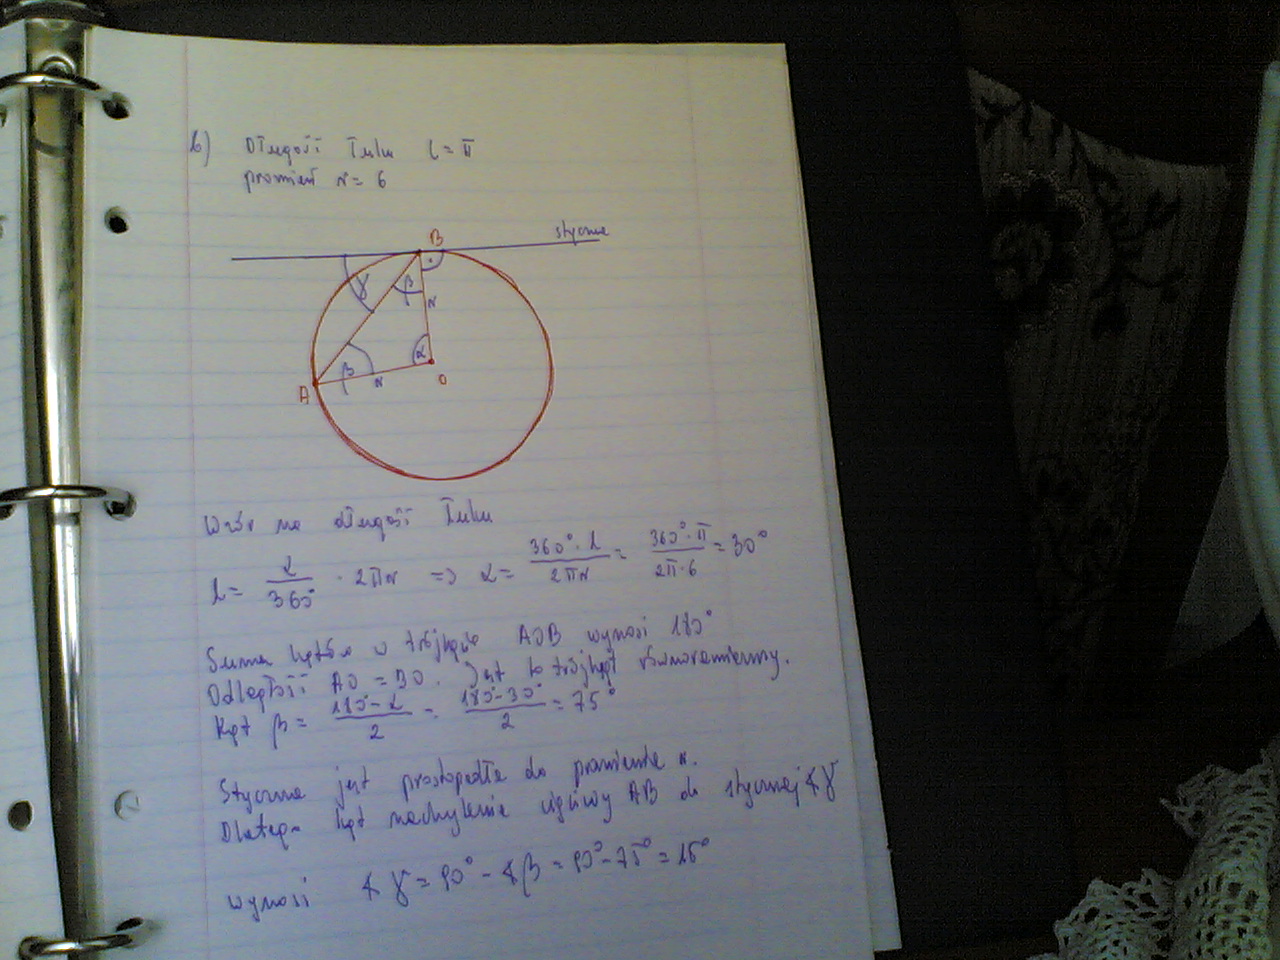 b) Długość łuku l = π
promień r = 6
styczna
B
γ β r
α
A β r O
Wzór na długość łuku
l = α/360° · 2πr => α = 360°·l/2πr = 360°·π/2π·6 = 30°
Suma kątów w trójkącie AOB wynosi 180°
Odległość AO = BO. Jest to trójkąt równoramienny.
Kąt β = 180°-α/2 = 180°-30°/2 = 75°
Styczna jest prostopadła do promienia r.
Dlatego kąt nachylenia cięciwy AB do stycznej ∢γ
wynosi ∢γ = 90° - ∢β = 90°-75° = 15°